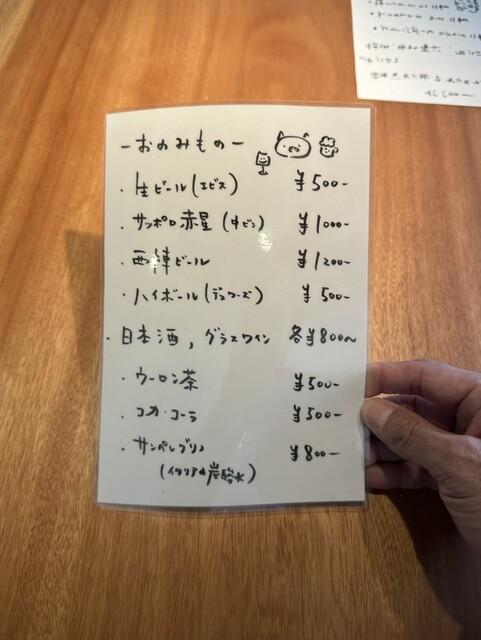 -おのみもの-
・生ビール(エビス) ¥500-
・サッポロ赤星(中ビン) ¥1000-
・西陣ビール ¥1200-
・ハイボール(デュワーズ) ¥500-
・日本酒,グラスワイン 各¥800~
・ウーロン茶 ¥500-
・コカ・コーラ ¥500-
・サンペレグリノ ¥800-
(イタリアの炭酸水)